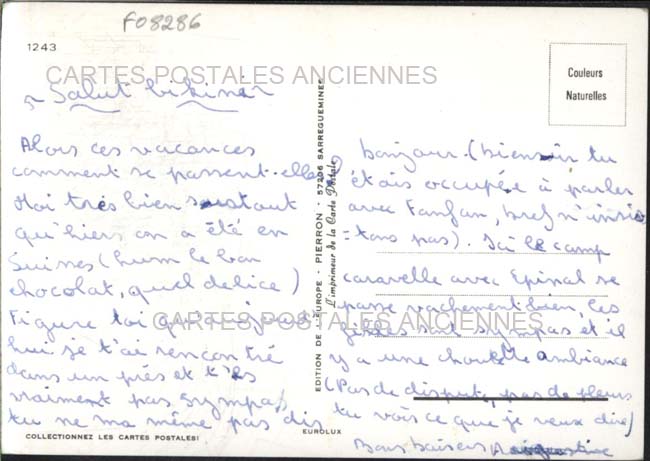 F08286
1243
CARTES POSTALES ANCIENNES
Couleurs
Naturelles
~ Salut bikini ~
Alors ces vacances
comment se passent-elles ?
Moi très bien surtout
qu'hiers on a été en
Suisses (hum le bon
chocolat, quel délice)
Figure toi qu'aujourd
hui je t'ai rencontré
dans un près et t'es
vraiment pas sympa,
tu ne ma même pas dis
COLLECTIONNEZ LES CARTES POSTALES!
EDITION DE L'EUROPE - PIERRON - 57206 SARREGUEMINES
L'imprimeur de la Carte Postale
EUROLUX
bonjour. (bien sûr tu
étais occupée à parler
avec Fanfan, bref n'insis
=tons pas). Ici le camp
caravelle avec Epinal se
passe vachement bien, les
sont sympas et il
y a une chouette ambiance
(Pas de disput, pas de pleurs
tu vois ce que je veux dire)
Bons baisers
CARTES POSTALES ANCIENNES